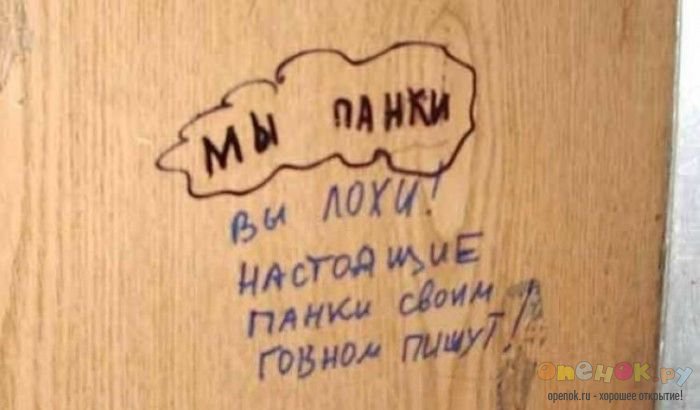 МЫ ПАНКИ
ВЫ ЛОХИ!
НАСТОЯЩИЕ
ПАНКИ СВОИМ
ГОВНОМ ПИШУТ!
опенок.ру
openok.ru - хорошее открытие!